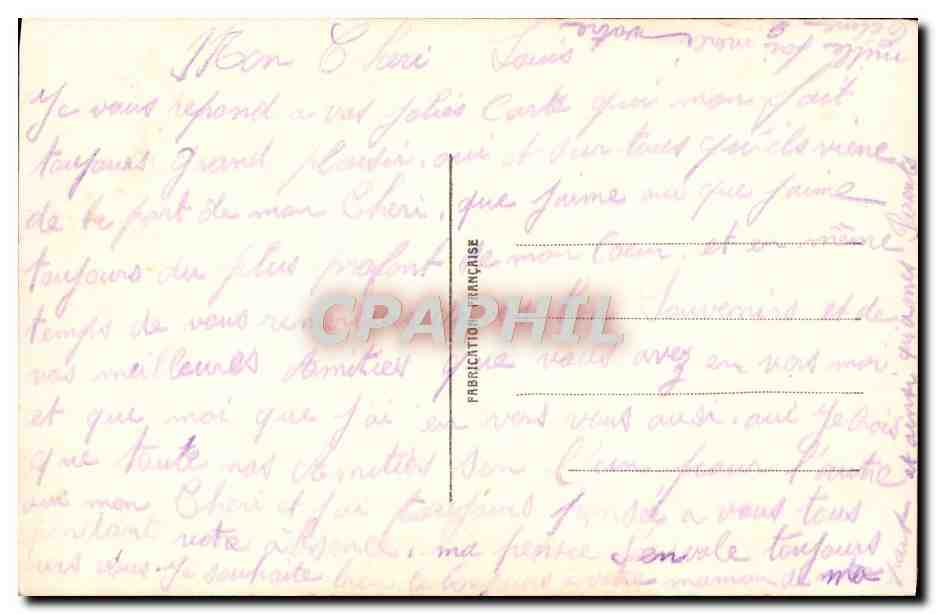 Mon Cheri Louis
Je vous repond a vos jolies Carte qui mon fait
toujours grand plaisir, oui et sur tous qu'ils viene
de la part de mon Cheri, que j'aime oui que j'aime
toujours au plus profont de mon Coeur, et en même
temps de vous Souvenirs et de
vos meilleures Amities que vous avez en vers moi
et que moi que j'ai en vers vous ausi, oui je crois
que toute nos Amities son l'un pour l'autre
oui mon Cheri et j'ai toujours pensé a vous tous
pendant votre absence, ma pensée s'envole toujours
vers vous. Je souhaite bien le toujours a votre maman de ma
part et ainsi qu'a mes Parents
mille foi votre
FABRICATION FRANÇAISE
CPAPHIL